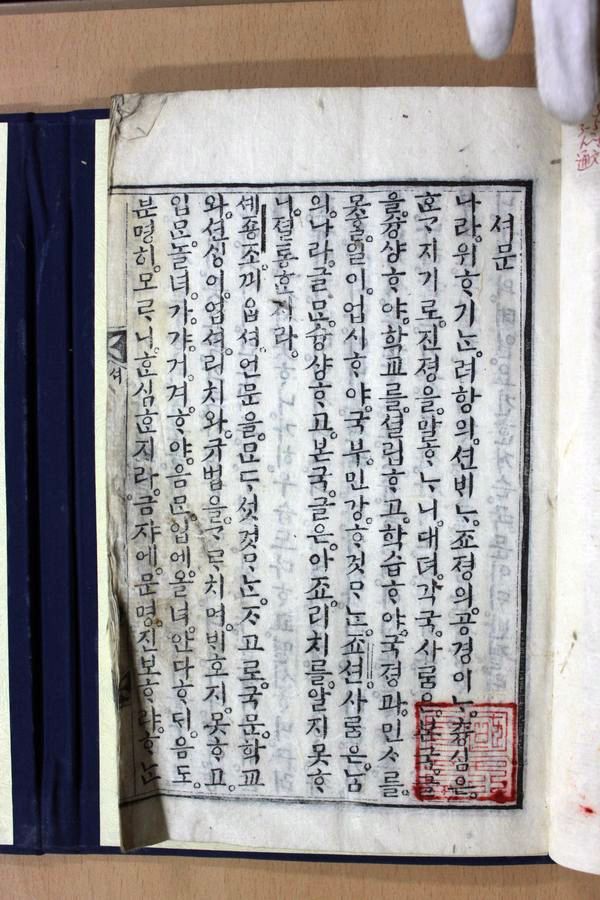 셔문
나라위ᄒᆞ기ᄂᆞᆫ。려항의션ᄇᆡᄂᆞ。죠졍의。공경이ᄂᆞ。츙심은。
ᄒᆞᆫᄀᆞ지기로。진졍을말ᄒᆞᄂᆞ니。대뎌각국사ᄅᆞᆷ은。본국글
을。슝샹ᄒᆞ야。학교를。셜립ᄒᆞ고。학습ᄒᆞ야。국졍과。민ᄉᆞ를
못ᄒᆞᆯ일이업시ᄒᆞ야。국부민강ᄒᆞ것ᄆᆞᄂᆞᆫ。죠션사ᄅᆞᆷ은。남
의。나라글ᄆᆞᆫ슝샹ᄒᆞ고。본국글은。아죠리치를。알지못ᄒᆞ
니。졀통ᄒᆞᆫ지라。
세죵죠끠옵셔언문을。ᄆᆞᆫᄃᆞ셧것ᄆᆞᄂᆞᆫ。ᄌᆞ고로국문학교
와。션ᄉᆡᆼ이。업셔。리치와。규법을。ᄀᆞᄅᆞ치며。ᄇᆡ호지못ᄒᆞ고。
입ᄆᆞᆫ놀녀。가갸거겨。ᄒᆞ야。음ᄆᆞᆫ。입에。올녀。안다ᄒᆞ되。음도。
분명히。모ᄅᆞ니。ᄒᆞᆫ심ᄒᆞᆫ지라。금쟈에。문명진보ᄒᆞ랴。ᄒᆞᄂᆞᆫ
셔